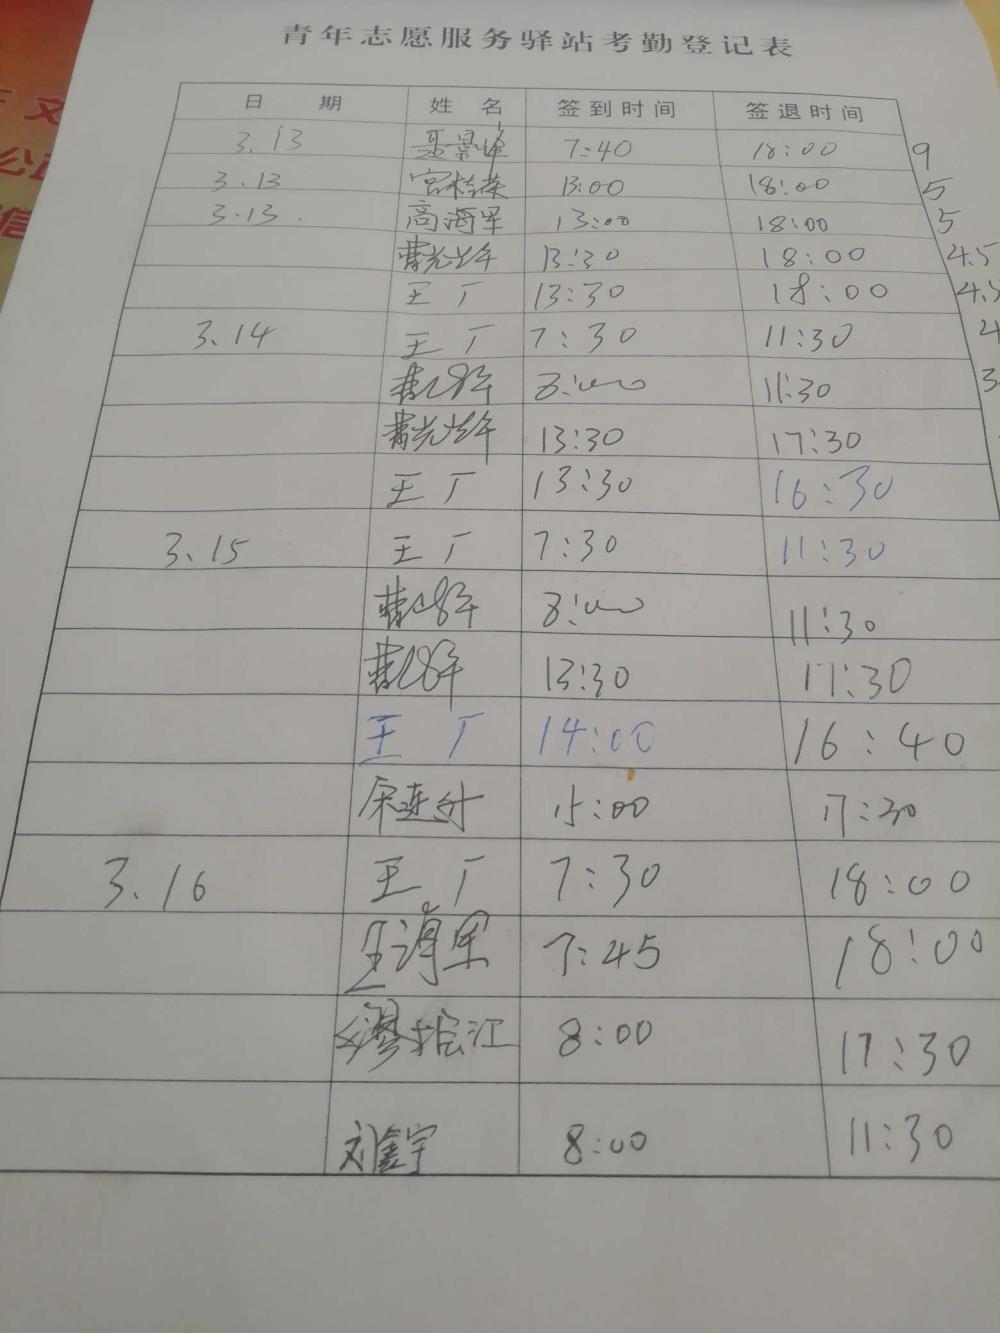 青年志愿服务驿站考勤登记表
日 期 姓 名 签到时间 签退时间
3.13 聂景峰 7:40 18:00 9
3.13 宫桂荣 13:00 18:00 5
3.13. 高海军 13:00 18:00 5
曹光年 13:30 18:00 4.5
王广 13:30 18:00 4.5
3.14 王广 7:30 11:30 4
曹 年 8:00 11:30 3
曹光年 13:30 17:30
王广 13:30 16:30
3.15 王广 7:30 11:30
曹 年 8:00 11:30
曹 年 13:30 17:30
王广 14:00 16:40
宋连 15:00 17:30
3.16 王广 7:30 18:00
王海军 7:45 18:00
江 8:00 17:30
刘鑫宇 8:00 11:30
文
信